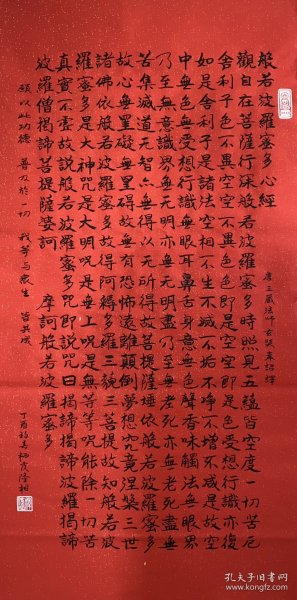 般若波羅蜜多心經
唐三藏法師玄奘奉詔譯
觀自在菩薩行深般若波羅蜜多時照見五蘊皆空度一切苦厄
舍利子色不異空空不異色色即是空空即是色受想行識亦復
如是舍利子是諸法空相不生不滅不垢不淨不增不減是故空
中無色無受想行識無眼耳鼻舌身意無色聲香味觸法無眼界
乃至無意識界無無明亦無無明盡乃至無老死亦無老死盡無
苦集滅道無智亦無得以無所得故菩提薩埵依般若波羅蜜多
故心無罣礙無罣礙故無有恐怖遠離顛倒夢想究竟涅槃三世
諸佛依般若波羅蜜多故得阿耨多羅三藐三菩提故知般若波
羅蜜多是大神咒是大明咒是無上咒是無等等咒能除一切苦
真實不虛故說般若波羅蜜多咒即說咒曰揭諦揭諦波羅揭諦
波羅僧揭諦菩提薩婆訶 摩訶般若波羅蜜多
願以此功德 普及於一切 我等與眾生 皆共成
丁酉初夏栖霞隆相
孔夫子旧书网